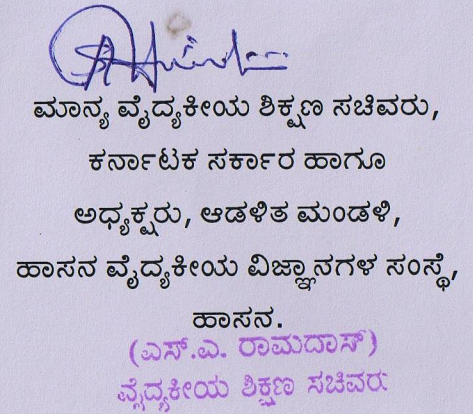 ಮಾನ್ಯ ವೈದ್ಯಕೀಯ ಶಿಕ್ಷಣ ಸಚಿವರು,
ಕರ್ನಾಟಕ ಸರ್ಕಾರ ಹಾಗೂ
ಅಧ್ಯಕ್ಷರು, ಆಡಳಿತ ಮಂಡಳಿ,
ಹಾಸನ ವೈದ್ಯಕೀಯ ವಿಜ್ಞಾನಗಳ ಸಂಸ್ಥೆ,
ಹಾಸನ.
(ಎಸ್.ಎ. ರಾಮದಾಸ್)
ವೈದ್ಯಕೀಯ ಶಿಕ್ಷಣ ಸಚಿವರು